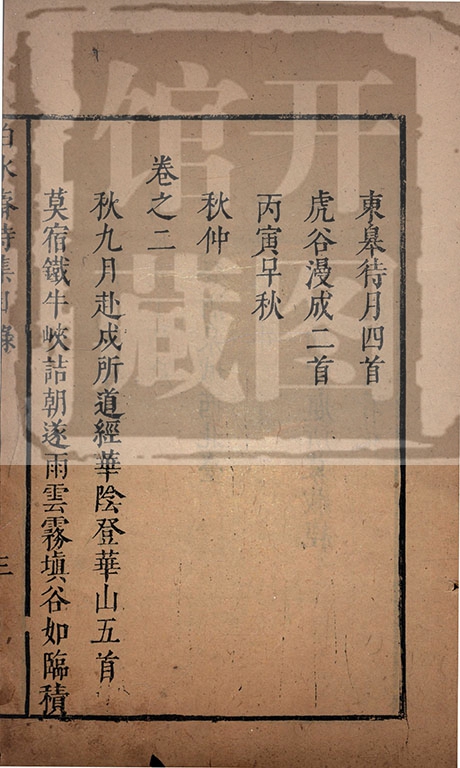 東皋待月四首
虎谷漫成二首
丙寅早秋
秋仲
卷之二
秋九月赴成所道經華陰登華山五首
莫宿鐵牛峽詰朝遂雨雲霧塡谷如臨積
三
开图
馆藏